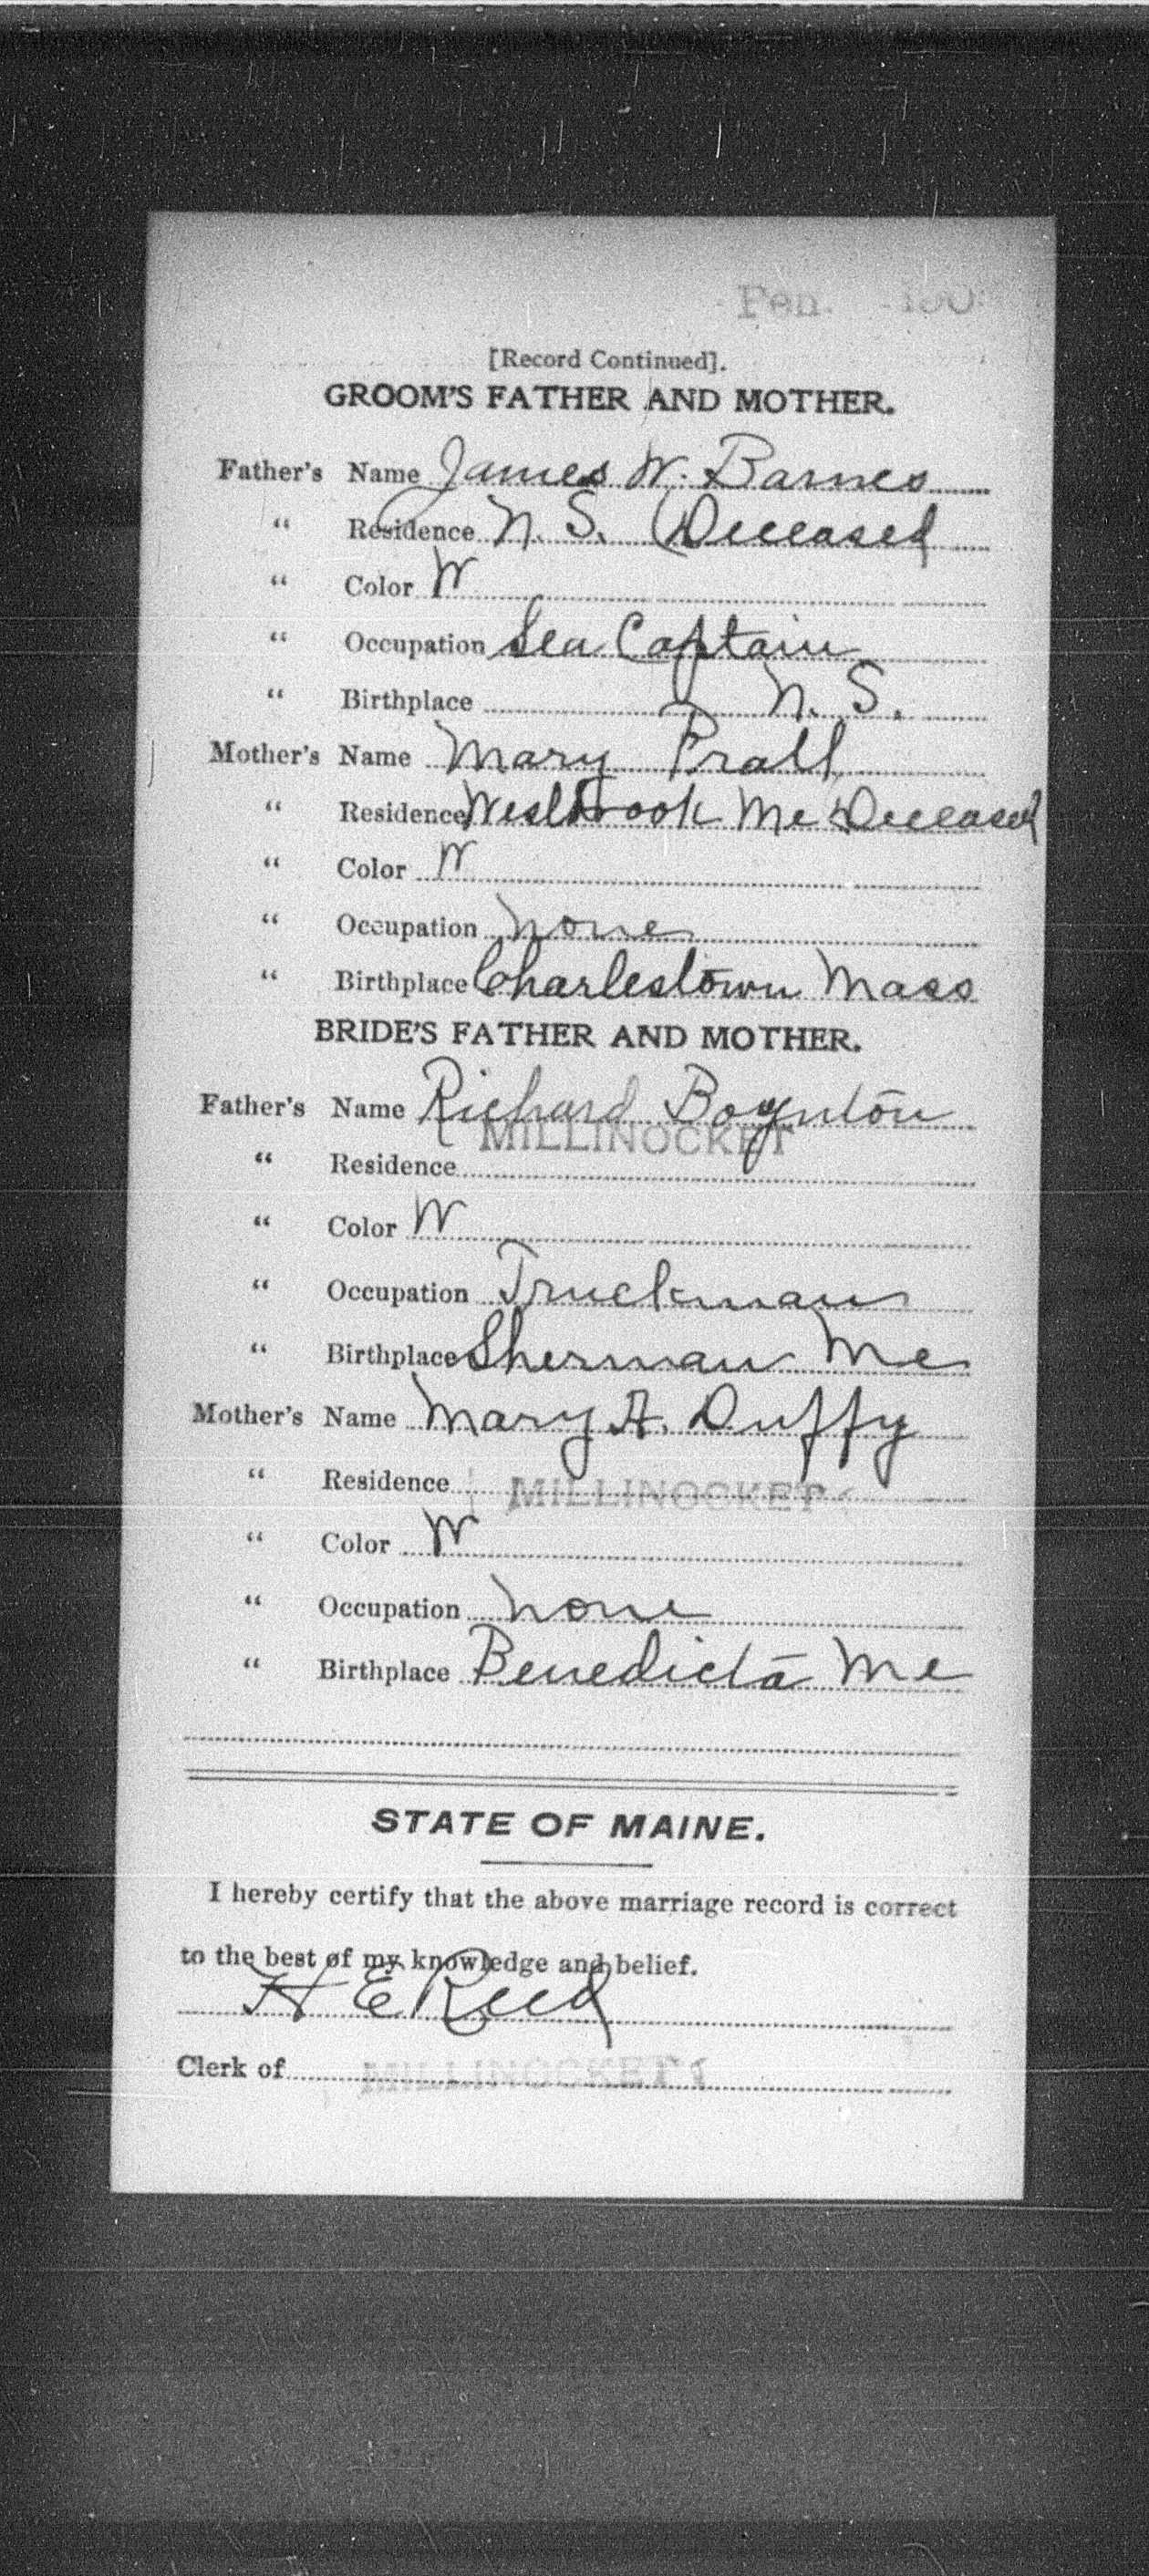 Pen.
[Record Continued].
GROOM'S FATHER AND MOTHER.
Father's Name James W. Barnes
" Residence N. S. (Deceased
" Color W
" Occupation Sea Captain
" Birthplace N. S.
Mother's Name Mary Pratt
" Residence Westbrook Me Deceased
" Color W
" Occupation None
" Birthplace Charlestown Mass
BRIDE'S FATHER AND MOTHER.
Father's Name Richard Boynton
" Residence MILLINOCKET
" Color W
" Occupation Truckman
" Birthplace Sherman Me
Mother's Name Mary A. Duffy
" Residence MILLINOCKET
" Color W
" Occupation None
" Birthplace Benedicta Me
STATE OF MAINE.
I hereby certify that the above marriage record is correct
to the best of my knowledge and belief.
H E Reed
Clerk of MILLINOCKET